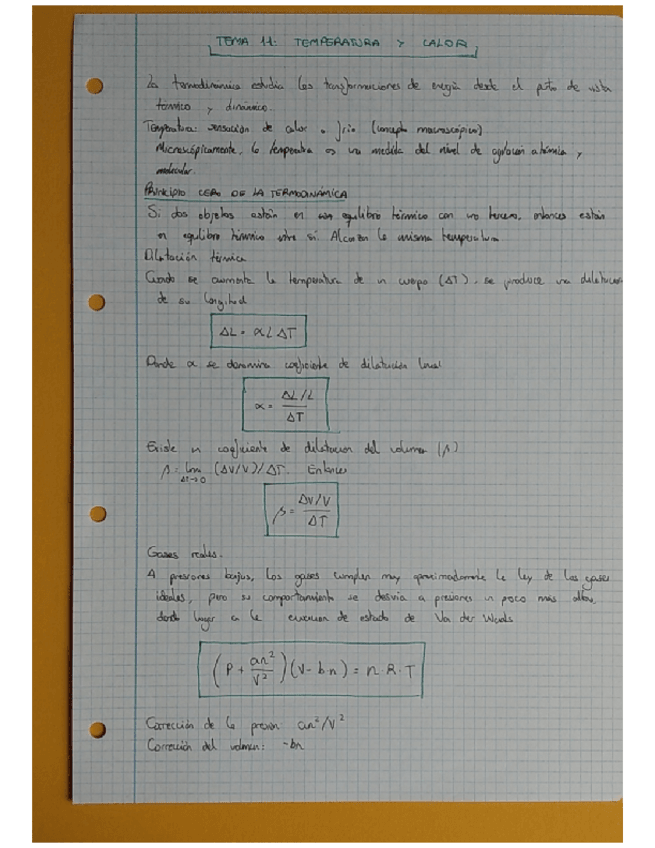 TEMA 11: TEMPERATURA Y CALOR
La termodinamica estudia las transformaciones de energía desde el pto de vista
térmico y dinámico.
Temperatura: sensación de calor o frío (concepto macroscópico)
Microscópicamente, la temperatura es una medida del nivel de agitación atómica y
molecular.
PRINCIPIO CERO DE LA TERMODINAMICA
Si dos objetos están en equilibro térmico con uno tercero, entonces están
en equilibro térmico entre sí. Alcanzan la misma temperatura
Dilatación térmica
Cuando se aumenta la temperatura de un cuerpo (ΔT), se produce una dilatación
de su longitud
ΔL = αL ΔT
Donde α se denomina coeficiente de dilatación lineal
α = (ΔL/L) / ΔT
Existe un coeficiente de dilatacion del volumen (β)
β = lim ΔT→0 (ΔV/V)/ΔT. Entonces
β = (ΔV/V) / ΔT
Gases reales.
A presiones bajas, los gases cumplen muy aproximadamente la ley de los gases
ideales, pero su comportamiento se desvia a presiones un poco más altas,
dando lugar a la ecuacion de estado de Van der Waals
(P + an²/V²)(V - bn) = n·R·T
Corrección de la presion: an²/V²
Corrección del volumen: -bn